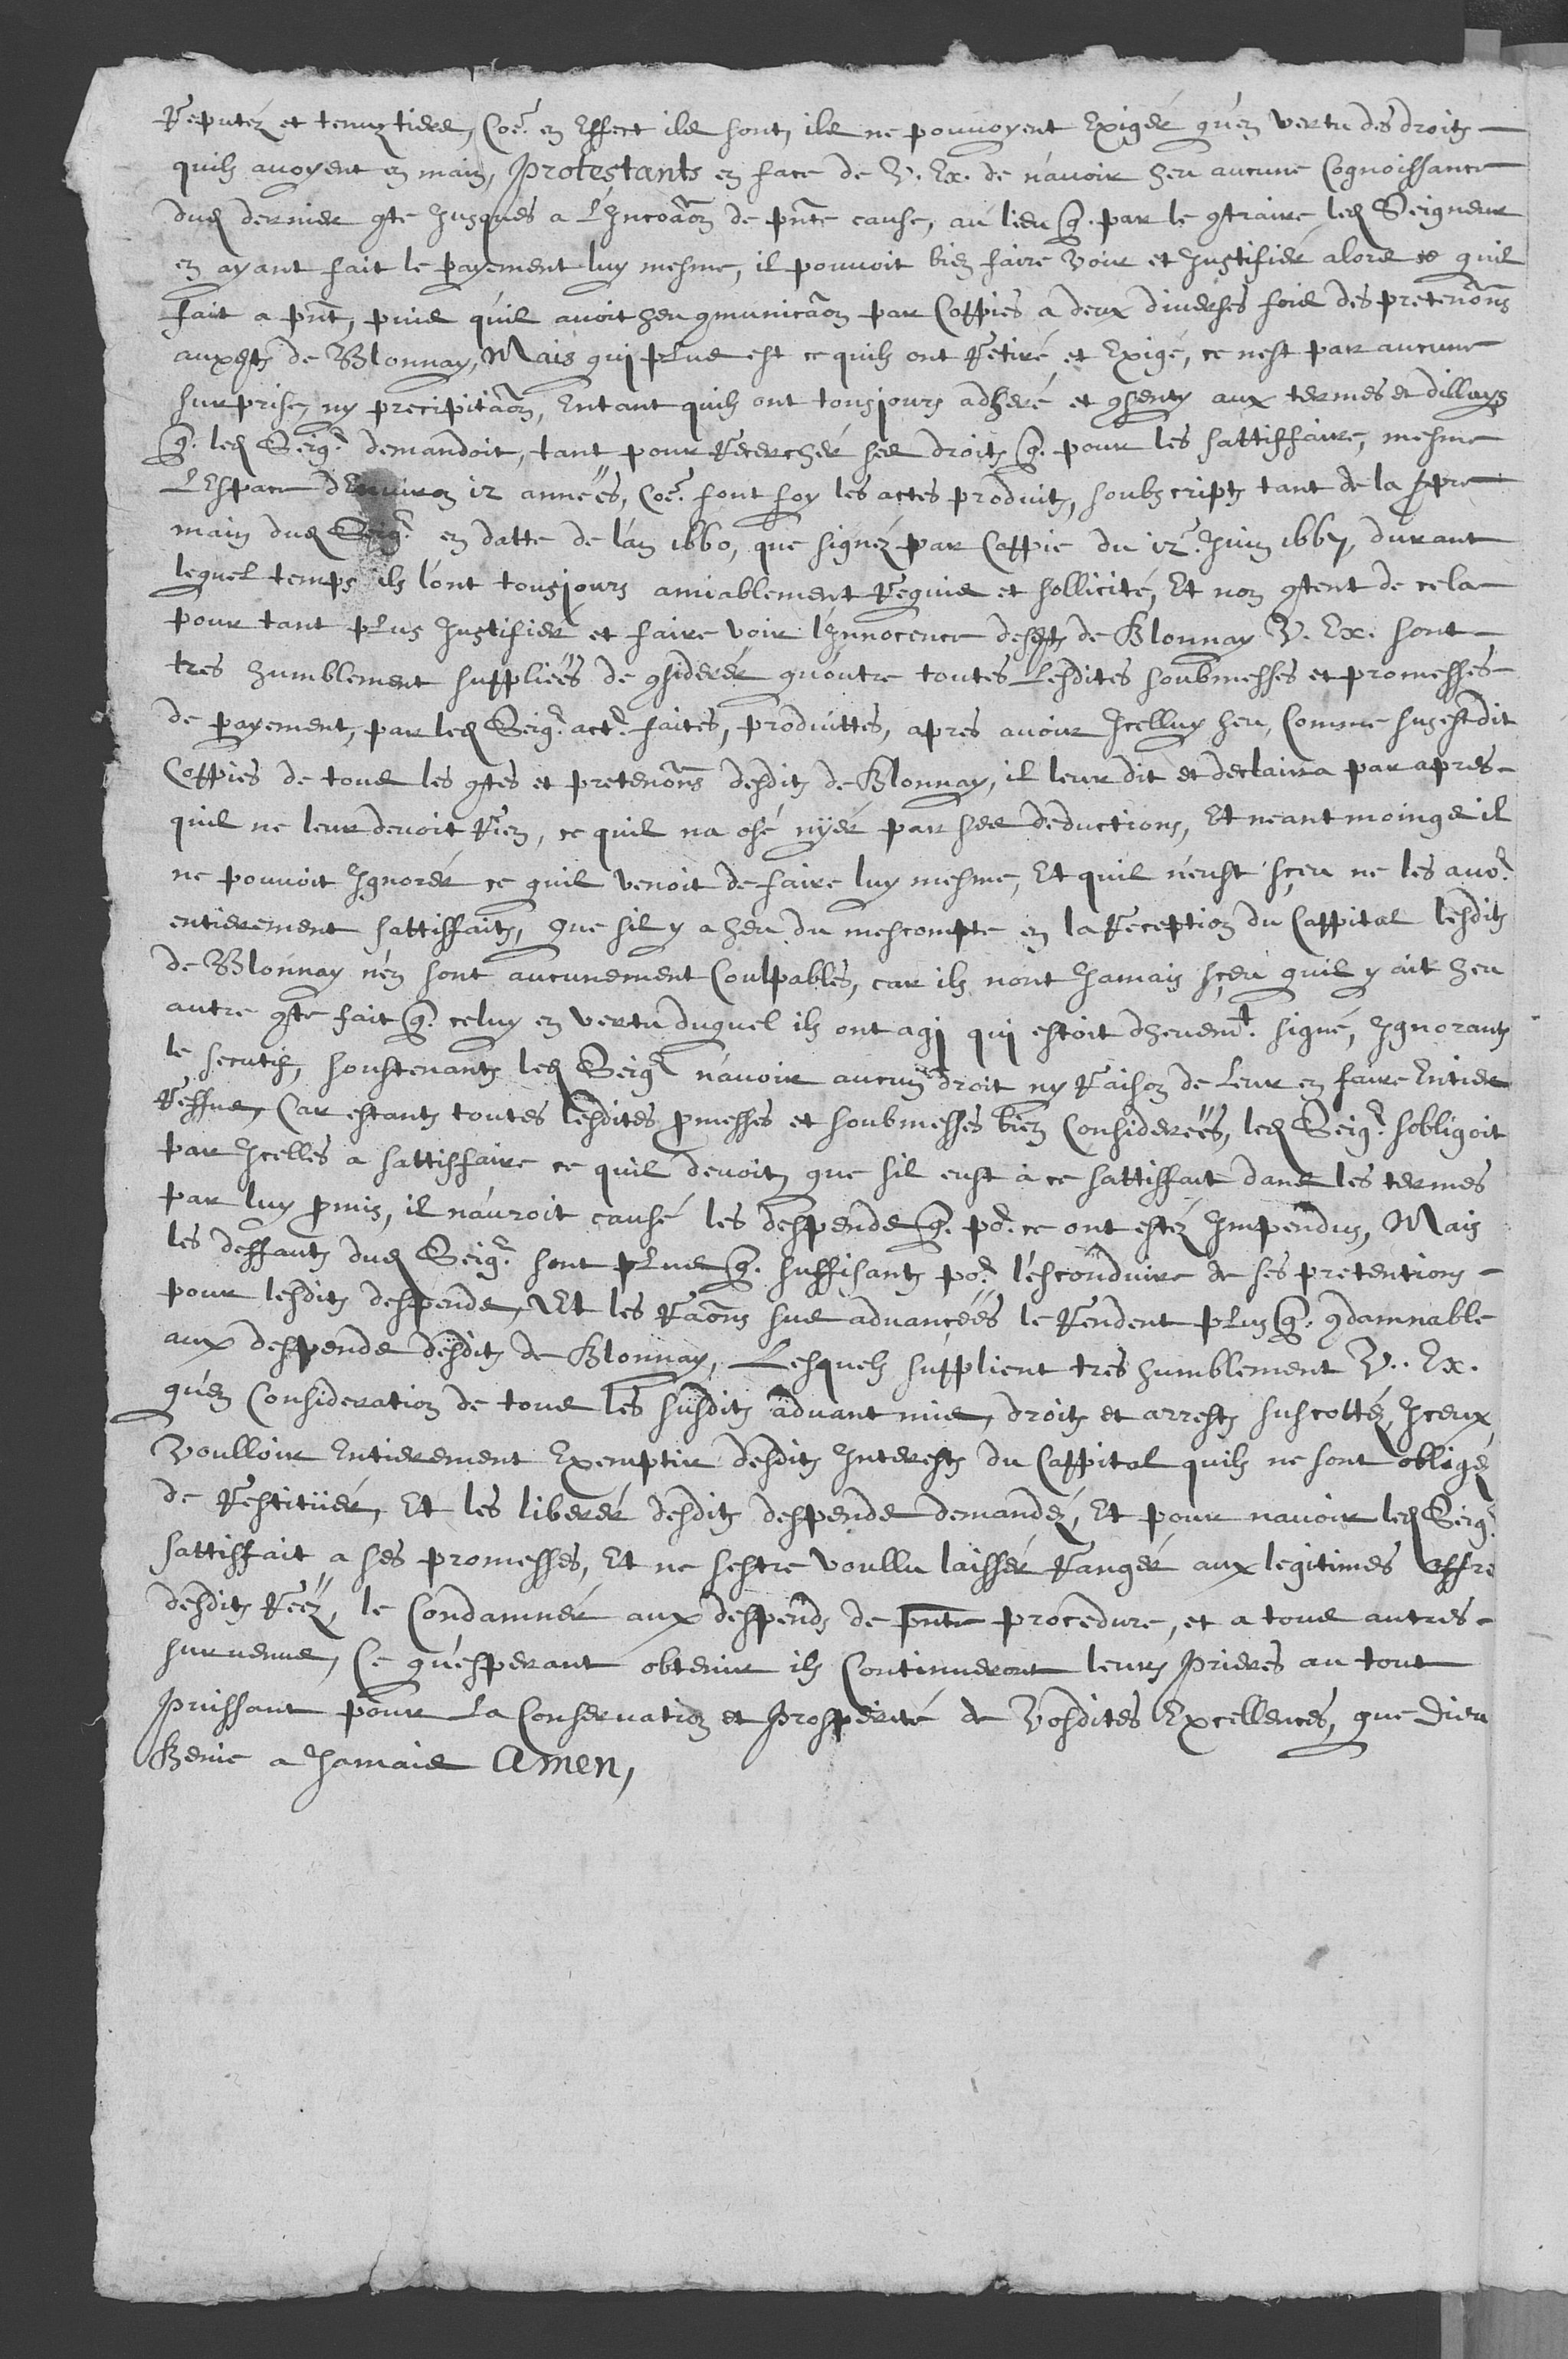 Reputéz et tenuz tiers, Coe. en Effect ils sont, ils ne pouvoyent Exigér qu'en vertu des droits
quils avoyent en main, Protestants en face de V. Ex. de n'avoir heu aucune Cognoissance
dud dernier 9te Jusques a L'Incoãon de pnte cause, au lieu q. par le 9traire led Seigneur
en ayant fait le payement luy mesme, il pouvoit bien faire voir et Justifiér alors ce quil
fait a pnt, puis qu'il avoit heu 9municãon par Coppies a deux diverses fois des pretenõns
auxdts de Blonnay, Mais qui plus est ce quils ont Retiré et Exigé, ce n'est par aucune
surprise, ny precipitãon, Entant quils ont tousjours adheré et 9senty aux termes et dillays
q. led Seigr. demandoit, tant pour Recerchér ses droits q. pour les sattiffaire, mesme
L'Espace d'Environ 12 annëes, Coe. font foy les actes produits, soubscripts tant de la ppre
main dud Seigr. en datte de l'an 1660, que signéz par Coppie du 12e. Juin 1667, durant
lequel temps ils l'ont tousjours amiablement Requis et sollicité, Et non 9tent de cela
pour tant plus Justifier et faire voir l'Innocence desdts de Blonnay V. Ex. sont
tres humblement suppliëes de 9siderér qu'outre toutes Lesdites soubmesses et promesses
de payement, par led Seigr. actr. faites, produittes, apres avoir Icelluy heu, Comme sus est dit
Coppies de tous les 9tes et pretenõns desdits de Blonnay, il leur dit et declaira par apres
quil ne leur devoit Rien, ce quil na osé nÿér par ses deductions, Et neantmoings il
ne pouvoit Ignorér ce quil venoit de faire luy mesme, Et quil n'eust sçeu ne les avor.
entierement sattiffaits, que sil y a heu du mescompte en la Reception du Cappital lesdits
de Blonnay n'en sont aucunement Coulpables, car ils nont Jamais sçeu quil y ait heu
autre 9te fait q. celuy en vertu duquel ils ont agi qui estoit dheuemt. signé, Ignorants
le secutif, soustenants led Seigr n'avoir aucun droit ny Raison de Leur en faire Entier
Reffus, Car estants toutes lesdites pmesses et soubmesses bien Considerëes, led Seigr. sobligoit
par Icelles a sattiffaire ce quil devoit, que sil eust à ce sattiffait dans les termes
par luy pmis, il n'auroit causé les despends q. por. ce ont estéz Impendus, Mais
les deffauts dud Seigr. sont plus q. suffisants por. l'esconduire de ses pretentions
pour lesdits despends, Et les Raõns sus advancëes le Rendent plus q. 9damnable
aux despends desdits de Blonnay, Lesquels supplient tres humblement V. Ex.
qu'en Consideration de tous les susdits advant mis, droits et arrests suscottéz, Iceux
Voulloir Entierement Exemptir desdits Interests du Cappital quils ne sont obligéz
de Restitüér, Et les liberér desdits despends demandéz, Et pour navoir led Seigr.
sattiffait a ses promesses, Et ne sestre voullu laissér Rangér aux legitimes offre
desdits Reéz, le Condamnér aux despends de pnte procedure, et a tous autres
survenus, Ce qu'esperant obtenir ils Continueront leurs Prieres au tout
Puissant pour La Conservation et Prosperité de Vosdites Excellences, que Dieu
Benie a Jamais Amen,